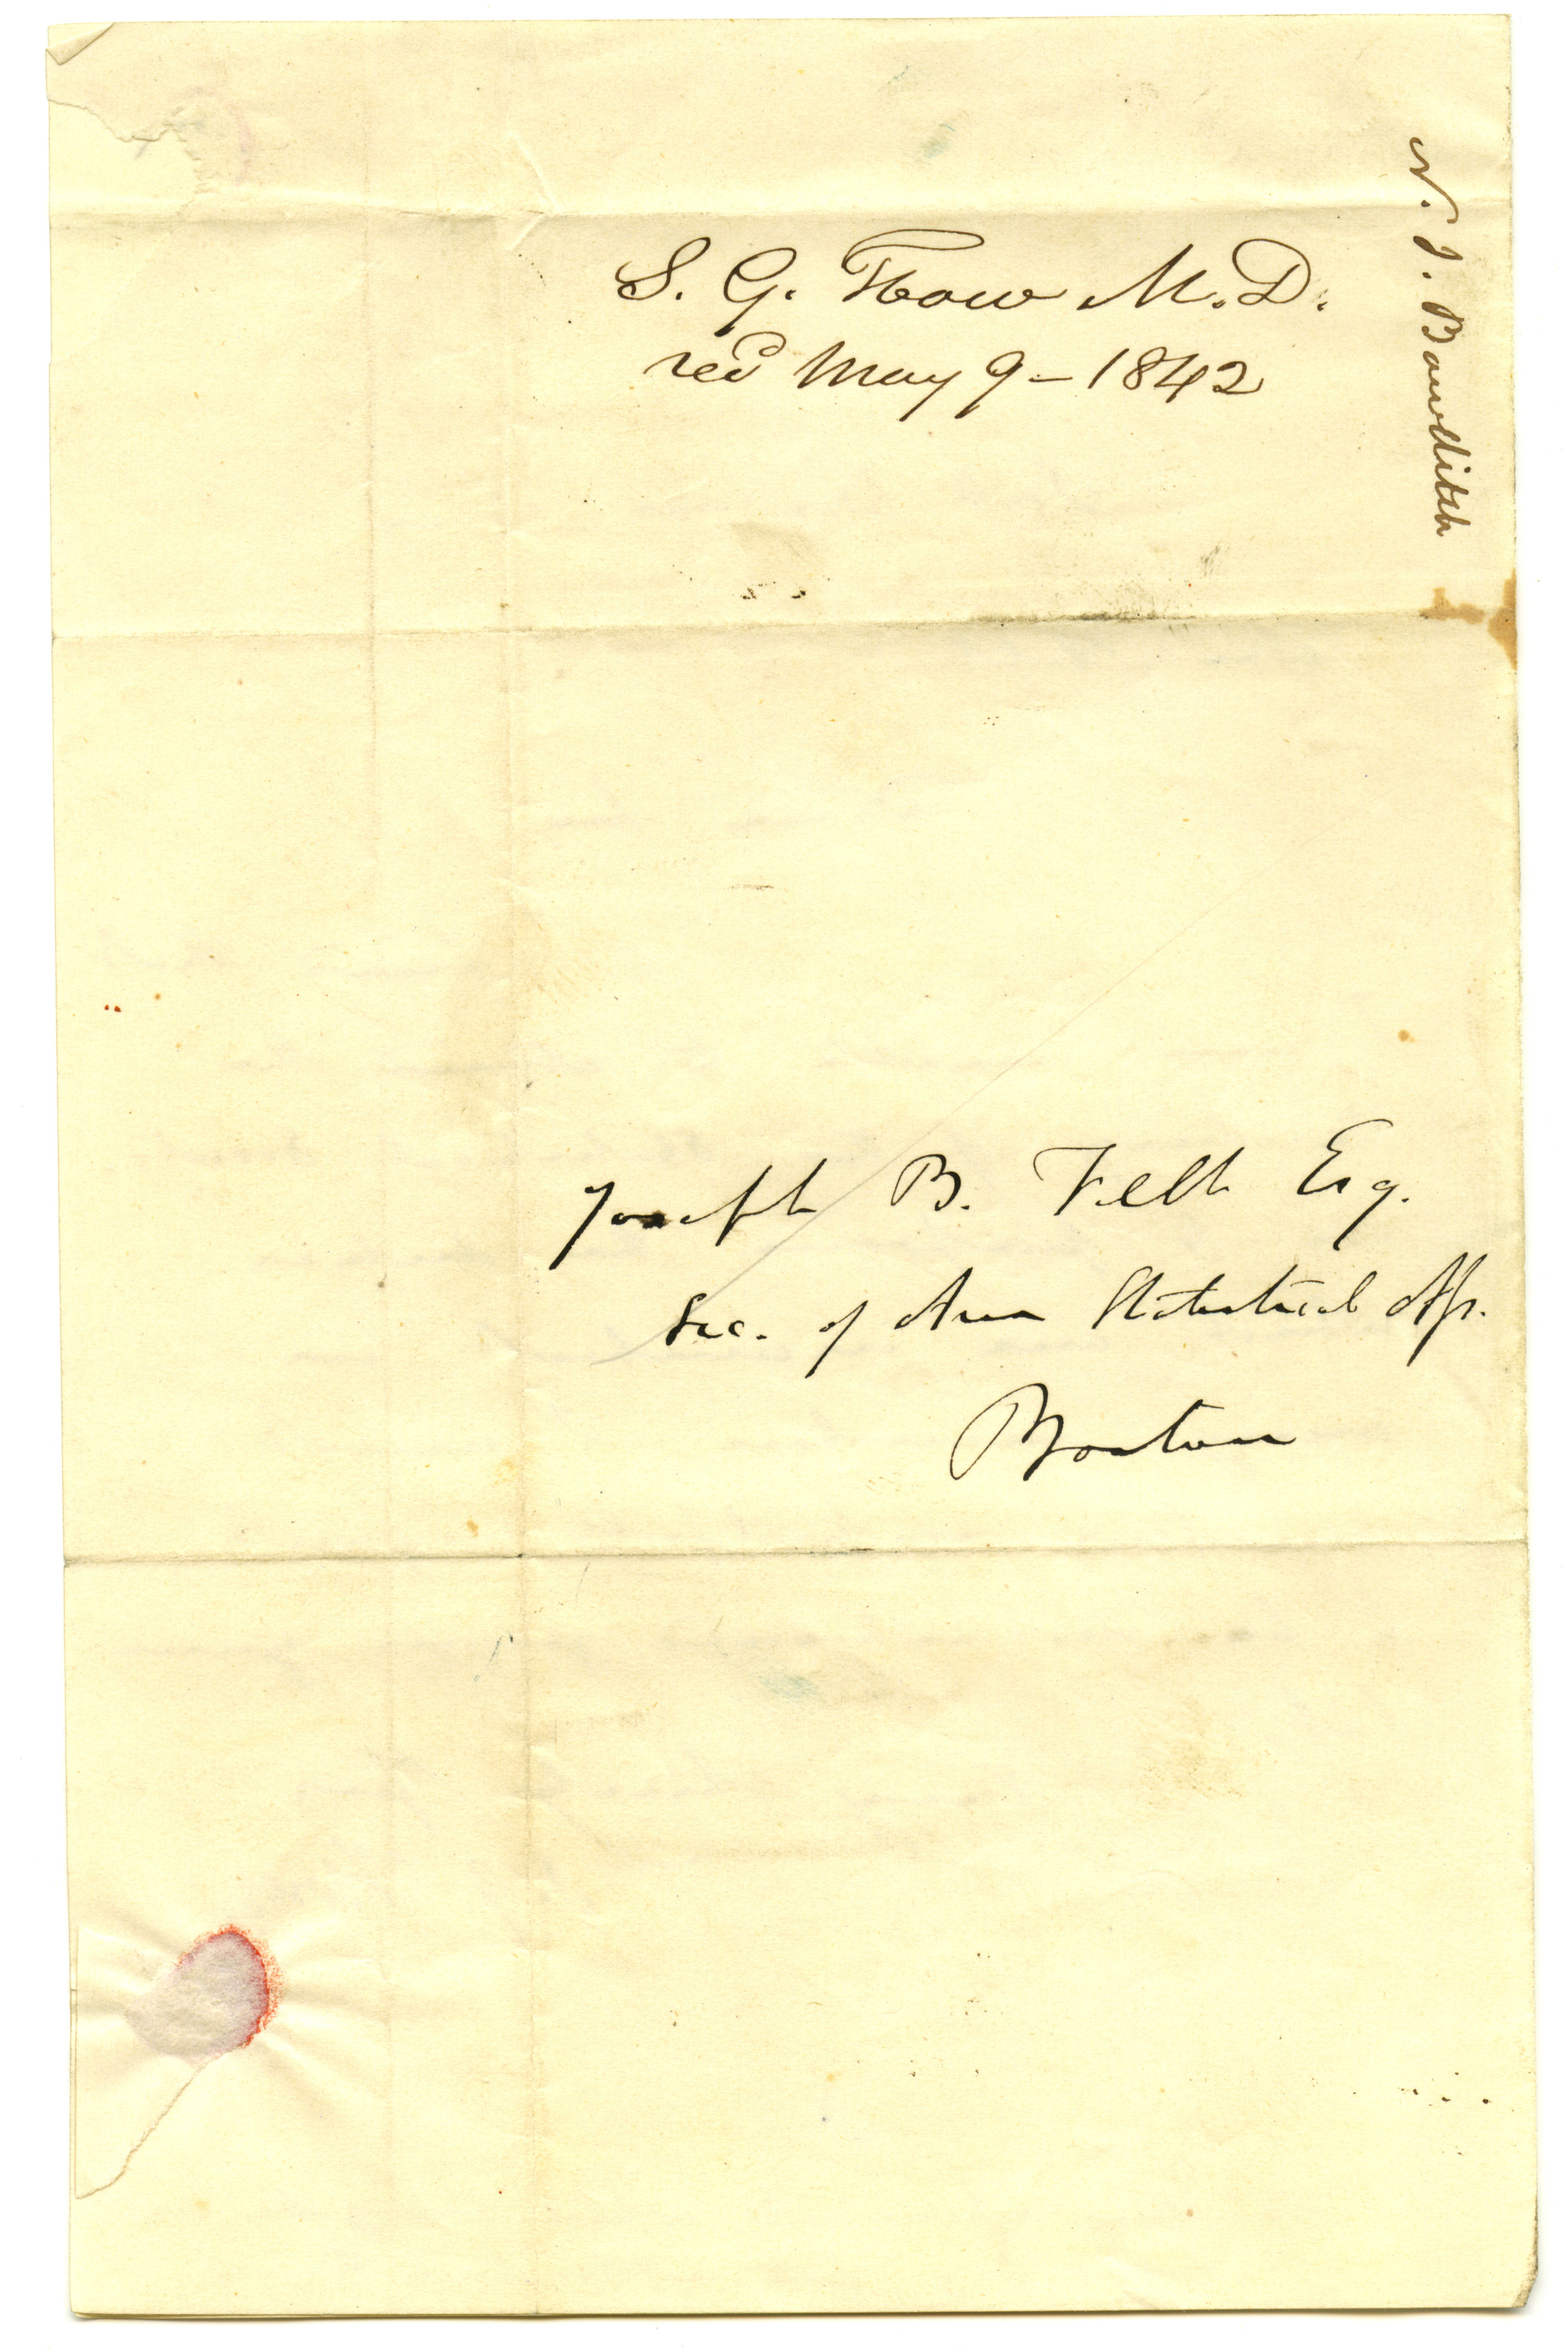 S. G. How M.D.
recd May 9 – 1842
N. I. Bowditch
Joseph B. Felt Esq.
Sec. of Am Statistical Ass.
Boston